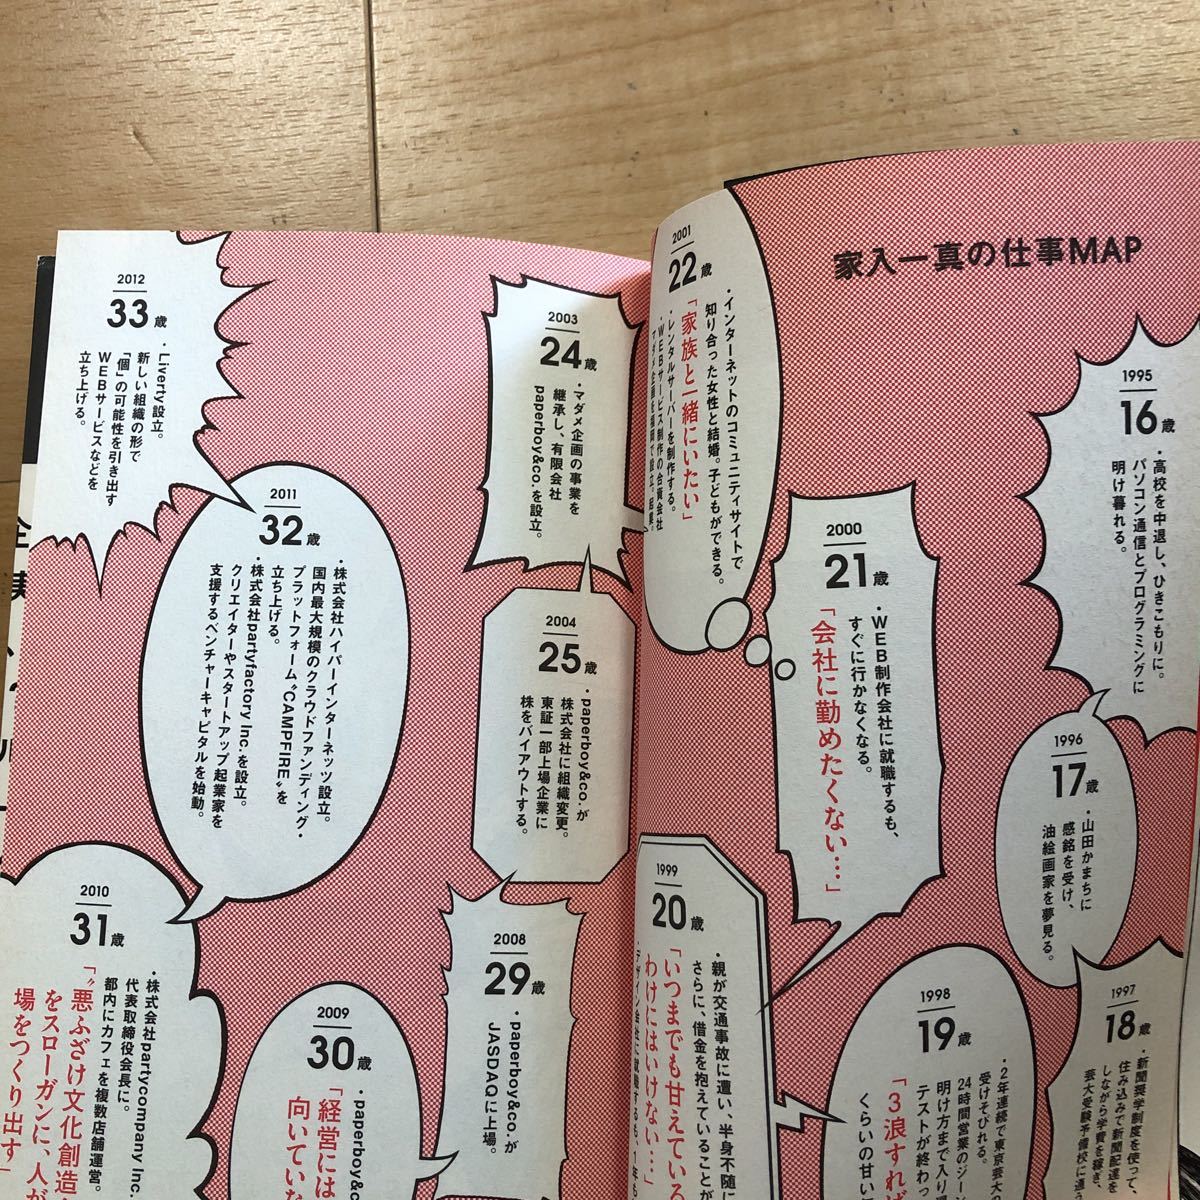 家入一真の仕事MAP
1995
16歳
・高校を中退し、ひきこもりに。
パソコン通信とプログラミングに
明け暮れる。
1996
17歳
・山田かまちに
感銘を受け、
油絵画家を夢見る。
1997
18歳
・新聞奨学制度を使って、
住み込みで新聞配達を
しながら学費を稼ぎ、
芸大受験予備校に通
1998
19歳
・2年連続で東京芸大の
受けそびれる。
24時間営業のジー
明け方まで入り
テストが終わっ
くらいの甘い
「3浪すれば
1999
20歳
・親が交通事故に遭い、半身不随に
さらに、借金を抱えていることが
「いつまでも甘えている
わけにはいかない…」
・デザイン会社に就職するも、1年も
2000
21歳
・WEB制作会社に就職するも、
すぐに行かなくなる。
「会社に勤めたくない…」
2001
22歳
・インターネットのコミュニティサイトで
知り合った女性と結婚。子どもができる。
「家族と一緒にいたい」
・レンタルサーバーを制作する。
・WEBサービス制作の合資会社
マダメ企画を福岡で設立。起業。
2003
24歳
・マダメ企画の事業を
継承し、有限会社
paperboy&co.を設立。
2004
25歳
・paperboy&co.が
株式会社に組織変更。
東証一部上場企業に
株をバイアウトする。
2008
29歳
・paperboy&co.が
JASDAQに上場。
2009
30歳
・paperboy&co.
「経営には
向いていな
2010
31歳
・株式会社partycompany Inc.
代表取締役会長に。
都内にカフェを複数店舗運営。
「“悪ふざけ文化創造”
をスローガンに、人が
場をつくり出す」
2011
32歳
・株式会社ハイパーインターネッツ設立。
国内最大規模のクラウドファンディング・
プラットフォーム“CAMPFIRE”を
立ち上げる。
・株式会社partyfactory Inc.を設立。
クリエイターやスタートアップ起業家を
支援するベンチャーキャピタルを始動。
2012
33歳
・Liverty設立。
新しい組織の形で
「個」の可能性を引き出す
WEBサービスなどを
立ち上げる。